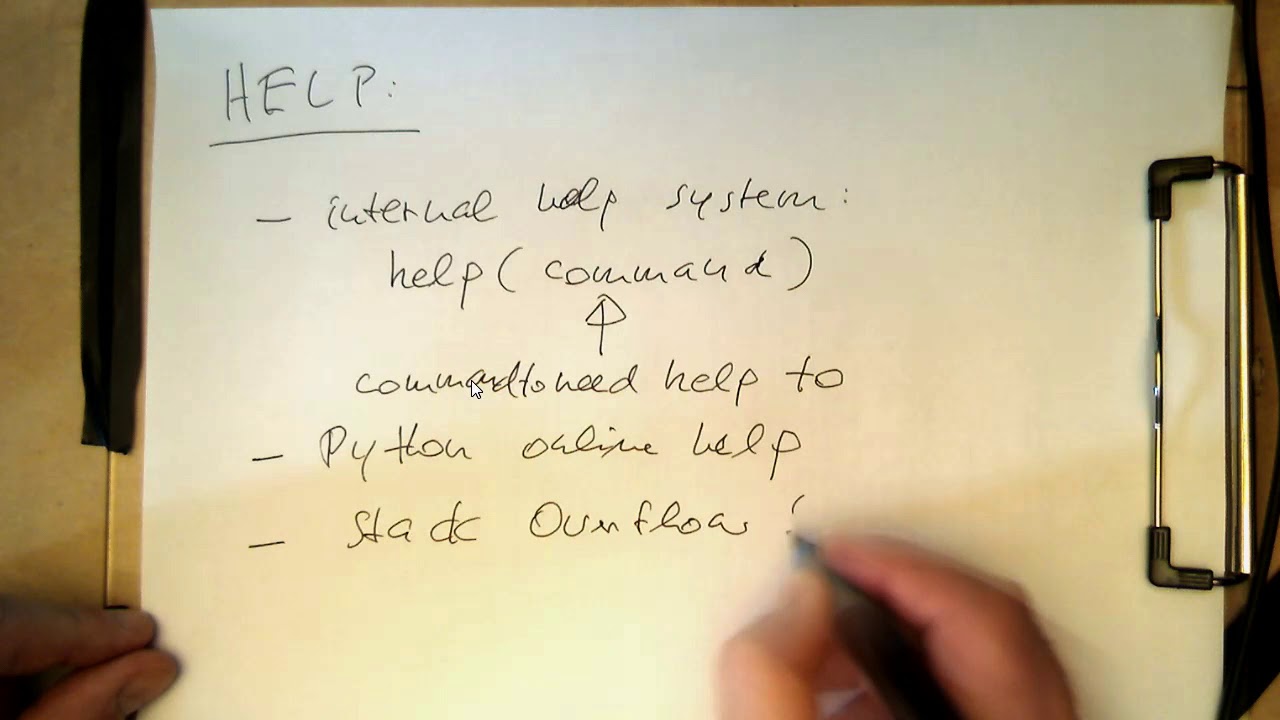 HELP:
– internal help system:
help(command)
command to need help to
– Python online help
– Stack Overflow (